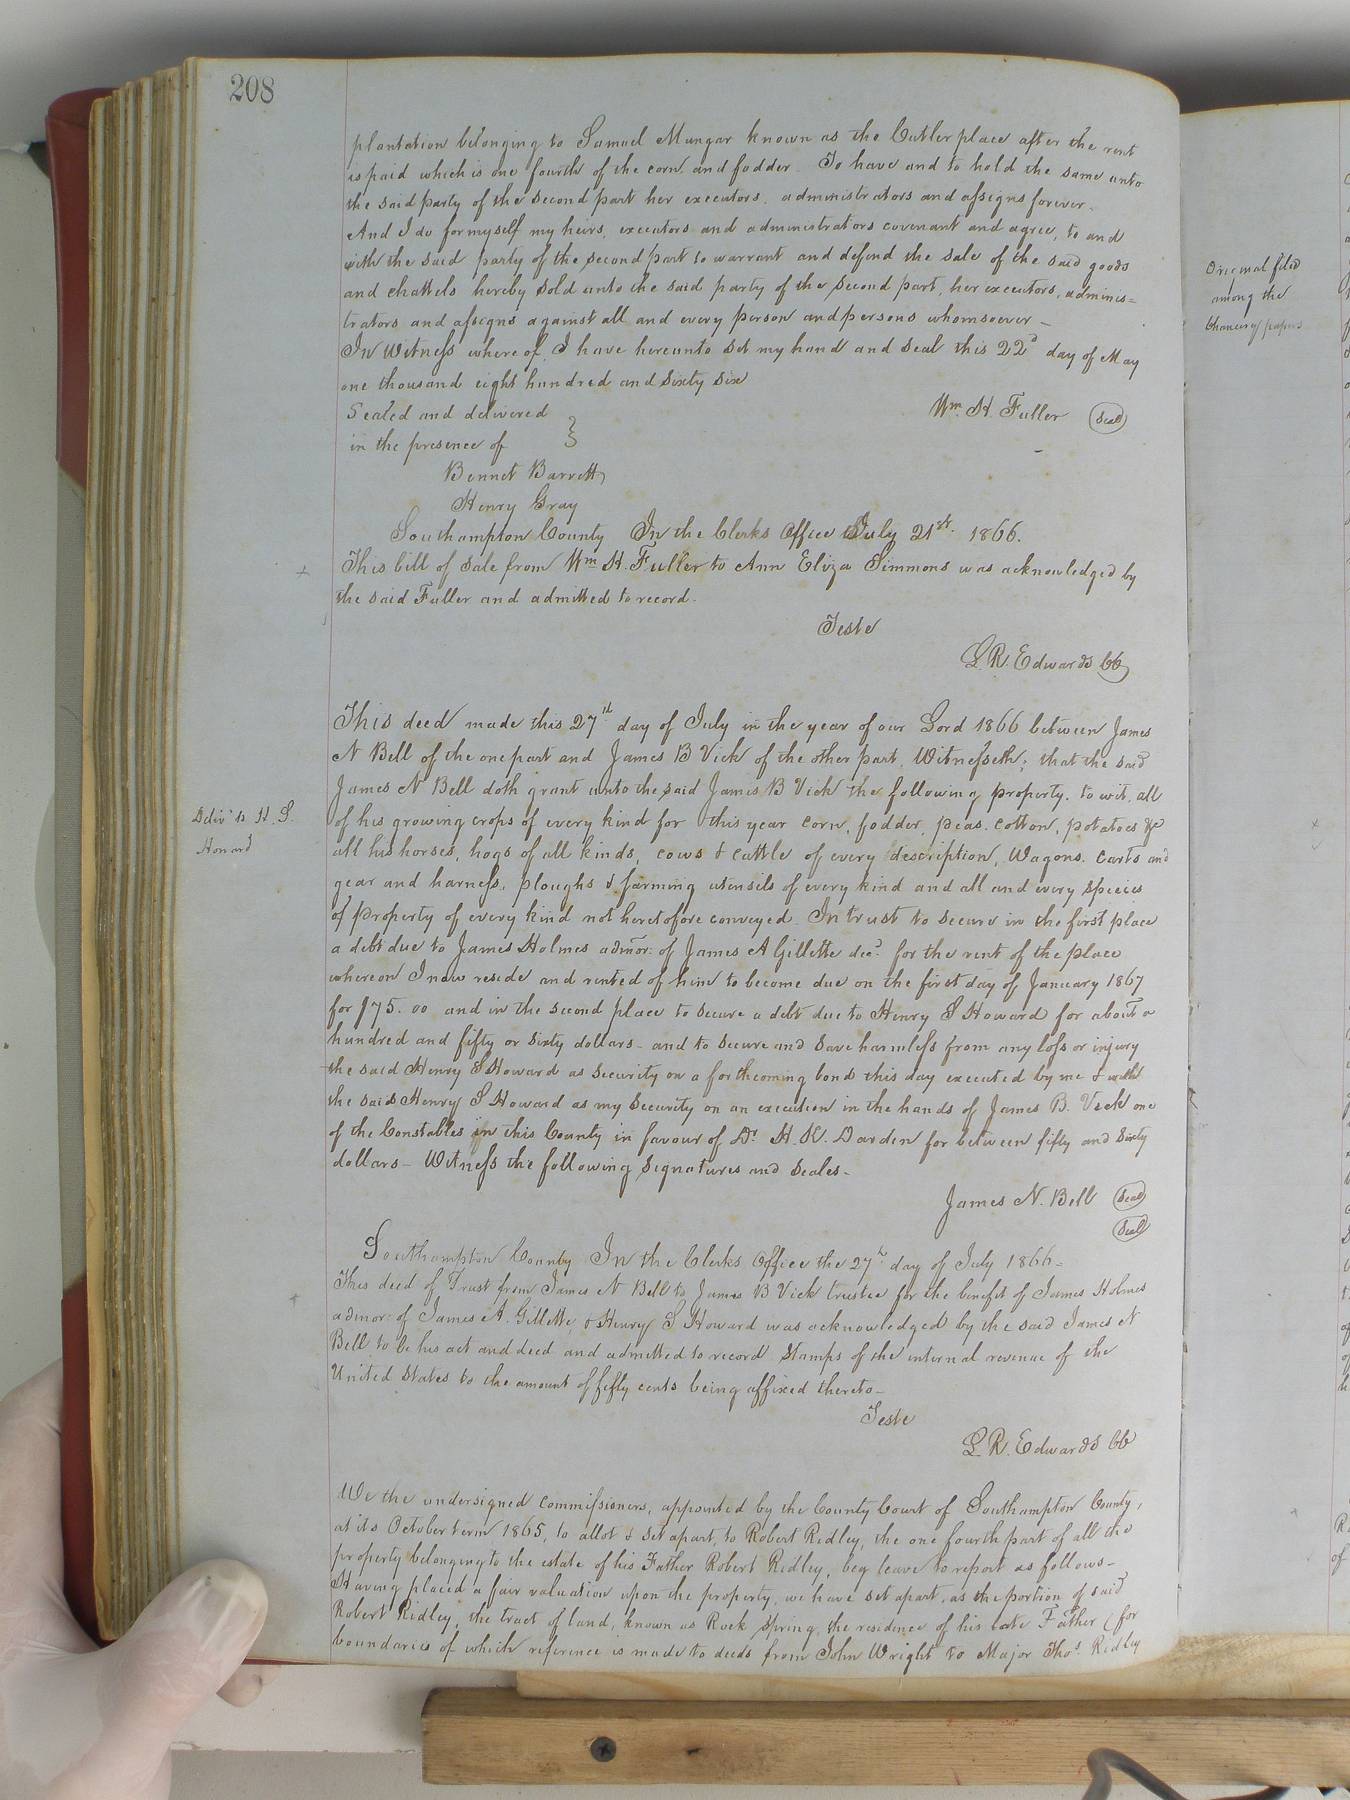 208
plantation belonging to Samuel Mungar known as the Cutler place after the rent
is paid which is one fourth of the corn and fodder. To have and to hold the same unto
the said party of the second part her executors, administrators and assigns forever.
And I do for myself my heirs, executors and administrators covenant and agree, to and
with the said party of the second part to warrant and defend the sale of the said goods
and chattels hereby sold unto the said party of the second part, her executors, adminis=
trators and assigns against all and every person and persons whomsoever -
In Witness whereof I have hereunto set my hand and seal this 22d day of May
one thousand eight hundred and sixty six
Sealed and delivered
Wm. H. Fuller (Seal)
in the presence of
Bennet Barrett
Henry Gray
Southampton County In the Clerks Office July 21st. 1866.
This bill of sale from Wm H. Fuller to Ann Eliza Simmons was acknowledged by
the said Fuller and admitted to record.
Teste
L. R. Edwards CC
This deed made this 27th day of July in the year of our Lord 1866 between James
N Bell of the one part and James B Vick of the other part, Witnesseth; that the said
James N Bell doth grant unto the said James B Vick the following property. to wit, all
Deliv'd H. S.
Howard
of his growing crops of every kind for this year corn, fodder, peas, cotton, potatoes &c
all his horses, hogs of all kinds, cows & cattle of every description, Wagons. Carts and
gear and harness, ploughs & farming utensils of every kind and all and every species
of property of every kind not heretofore conveyed. In trust to secure in the first place
a debt due to James Holmes admor: of James A Gillette decd. for the rent of the place
whereon I now reside and rented of him to become due on the first day of January 1867
for $75.00 and in the second place to secure a debt due to Henry S Howard for about a
hundred and fifty or sixty dollars - and to secure and save harmless from any loss or injury
the said Henry S Howard as security on a forthcoming bond this day executed by me &
the said Henry S Howard as my security on an execution in the hands of James B. Vick one
of the Constables in this County in favour of Dr H. K. Darden for between fifty and sixty
dollars - Witness the following signatures and seales -
James N. Bell (Seal)
(Seal)
Southampton County In the Clerks Office the 27th day of July 1866 -
This deed of Trust from James N Bell to James B Vick trustee for the benefit of James Holmes
admor: of James A. Gillette, & Henry S Howard was acknowledged by the said James N
Bell to be his act and deed and admitted to record Stamps of the internal revenue of the
United States to the amount of fifty cents being affixed thereto -
Teste
L. R. Edwards CC
We the undersigned commissioners, appointed by the County Court of Southampton County,
at its October term 1865, to allot & set apart, to Robert Ridley, the one fourth part of all the
property belonging to the estate of his Father Robert Ridley, beg leave to report as follows -
Having placed a fair valuation upon the property, we have set apart, as the portion of said
Robert Ridley, the tract of land, known as Rock Spring, the residence of his late Father (for
boundaries of which reference is made to deeds from John Wright to Major Thos. Ridley
Original filed
among the
Chancery papers